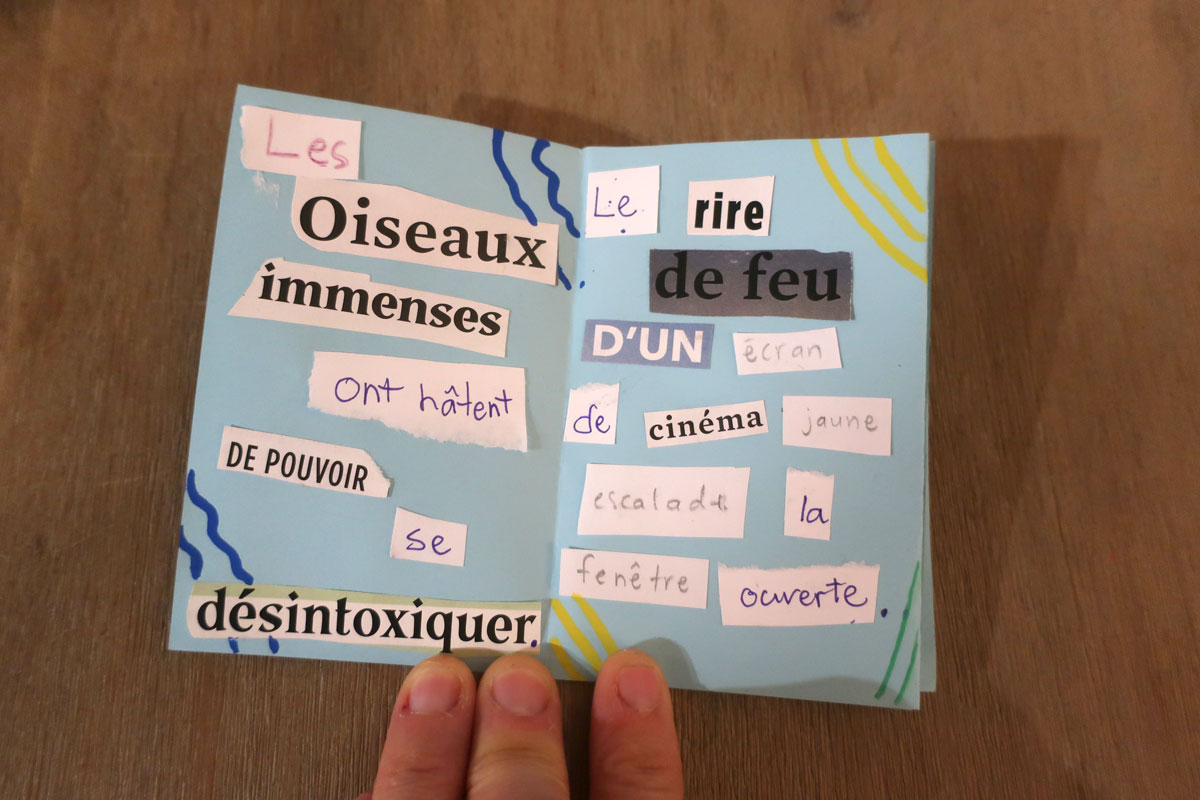 Les
Oiseaux
immenses
ont hâtent
DE POUVOIR
se
désintoxiquer.
Le rire
de feu
D'UN écran
de cinéma jaune
escalade la
fenêtre ouverte.